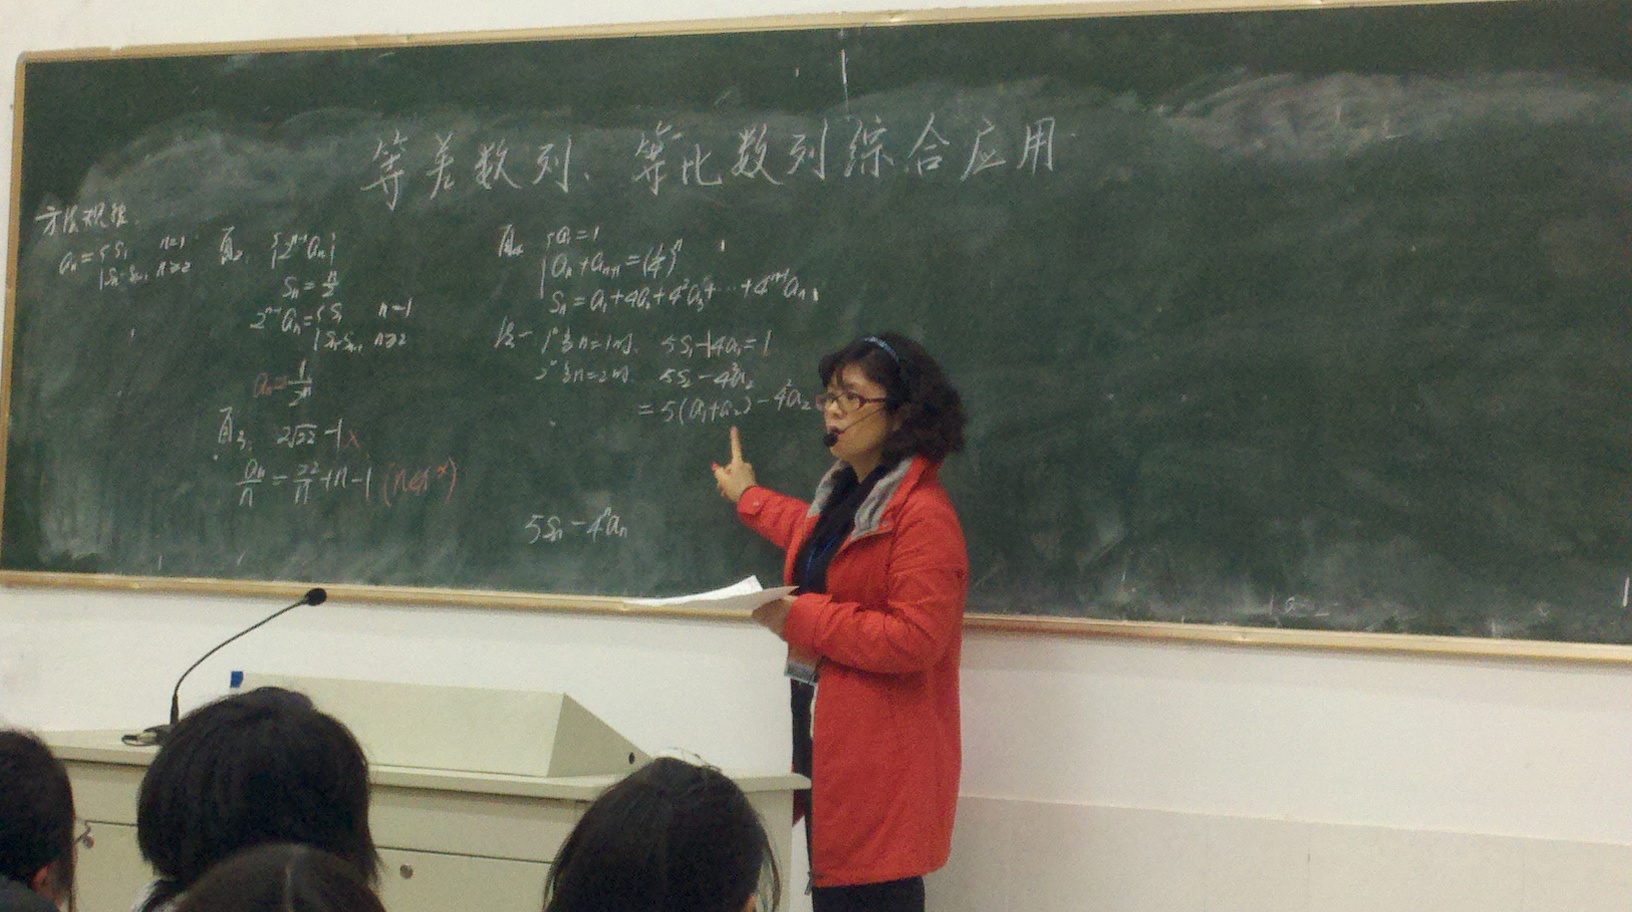 等差数列、等比数列综合应用
方法规律
aₙ={S₁ n=1
Sₙ-Sₙ₋₁ n≥2
{2ⁿ⁻¹aₙ}
Sₙ=n/2
2ⁿ⁻¹aₙ={S₁ n=1
Sₙ-Sₙ₋₁ n≥2
aₙ=1/2ⁿ
2√22-1
aₙ/n=22/n+n-1 (n∈N*)
{a₁=1
aₙ+aₙ₊₁=(1/4)ⁿ
Sₙ=a₁+4a₂+4²a₃+…+4ⁿ⁻¹aₙ
法一 1° 当n=1时, 5S₁-4a₁=1
2° 当n=2时 5S₂-4²a₂
=5(a₁+a₂)-4²a₂
5Sₙ-4ⁿaₙ